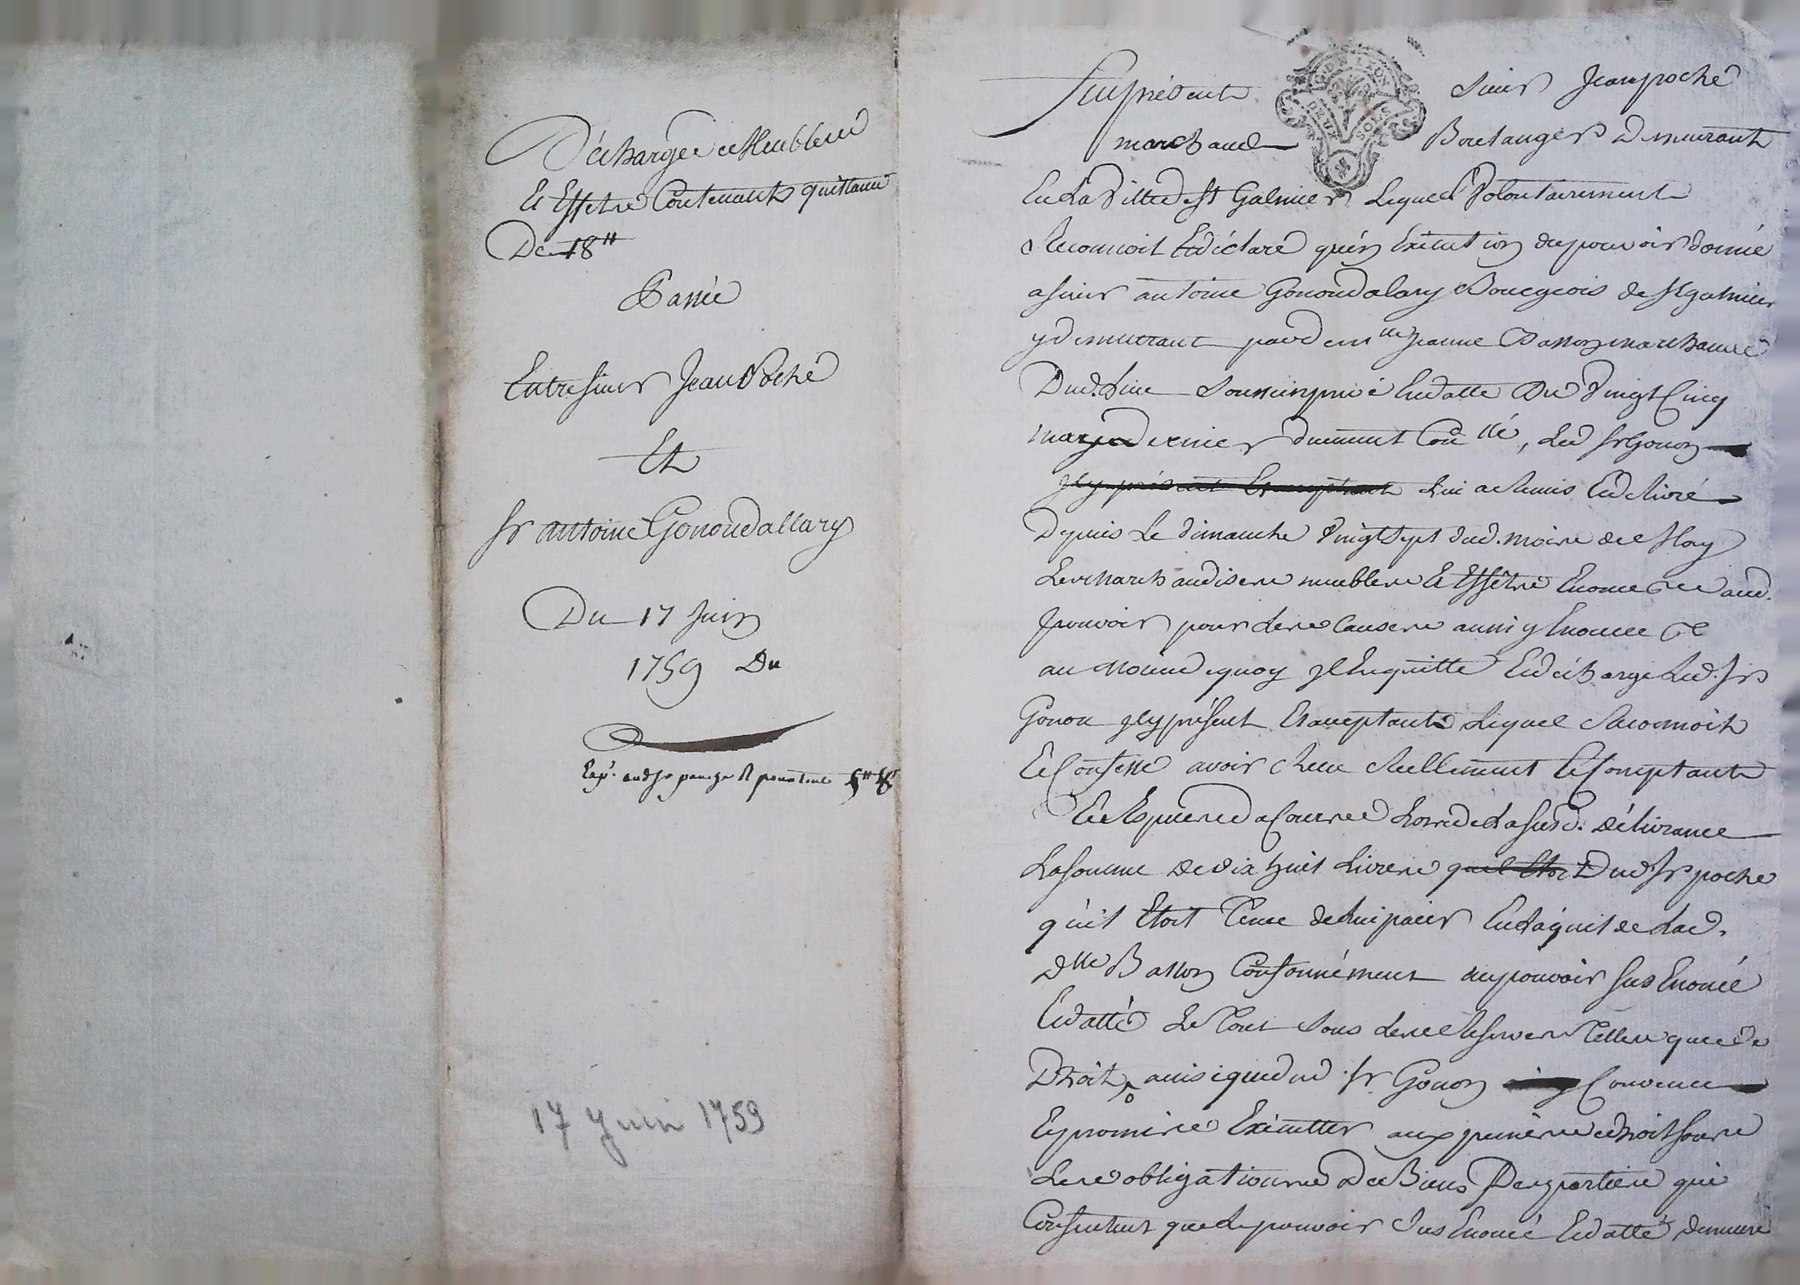 Décharge de Meubles
Et Effets Contenants quittance
De 18#
Passée
Entre sieur Jean Poché
Et
Sr antoine Gonon dallary
Du 17 Juin
1759 Du
Exp.
17 Juin 1759
G. DE LYON
DEUX SOLS
Fut présent sieur Jean poché
marchand Boulanger demeurant
En La Ville de St Galmier Lequel Volontairement
Reconnoit Et déclare qu'en Exécution du pouvoir donné
a sieur antoine Gonon dalary Bourgeois de St galmier
y demeurant par dem.lle Jeanne Basson marchande
Dud. lieu Sous seinprivé En datte Du Vingt Cinq
may dernier duement Con.llé, Led Sr Gonon
jcy présent Et acceptant Lui a Remis Et délivré
Depuis Le dimanche Vingt sept dud. mois de May
Les marchandises meubles Et Effets Enoncés aud.
pouvoir pour les Causes aussy Enoncées
au Moien de quoy jl En quitte Et décharge Led. Sr
Gonon jcy présent Et acceptant Lequel Reconnoit
Et Confesse avoir Receu Réellement Et Comptant
En Espèces de Cours Lors de La susd. Délivrance
La somme De dix huit Livres quil Etoi Dud. Sr poché
qu'il Etoit Tenu de Lui paier En L'aquit de Lad.
Dlle Basson Conformément au pouvoir sus Enoncé
Et datté Le Tout Sous Les Réserves Telles que de
Droit, ainsi que dud. Sr Gonon Convenu
Et promis Exécutter aux peines de droit sous
Les obligations De Biens Des parties qui
Consentent que Le pouvoir Sus Enoncé Et datté demeure